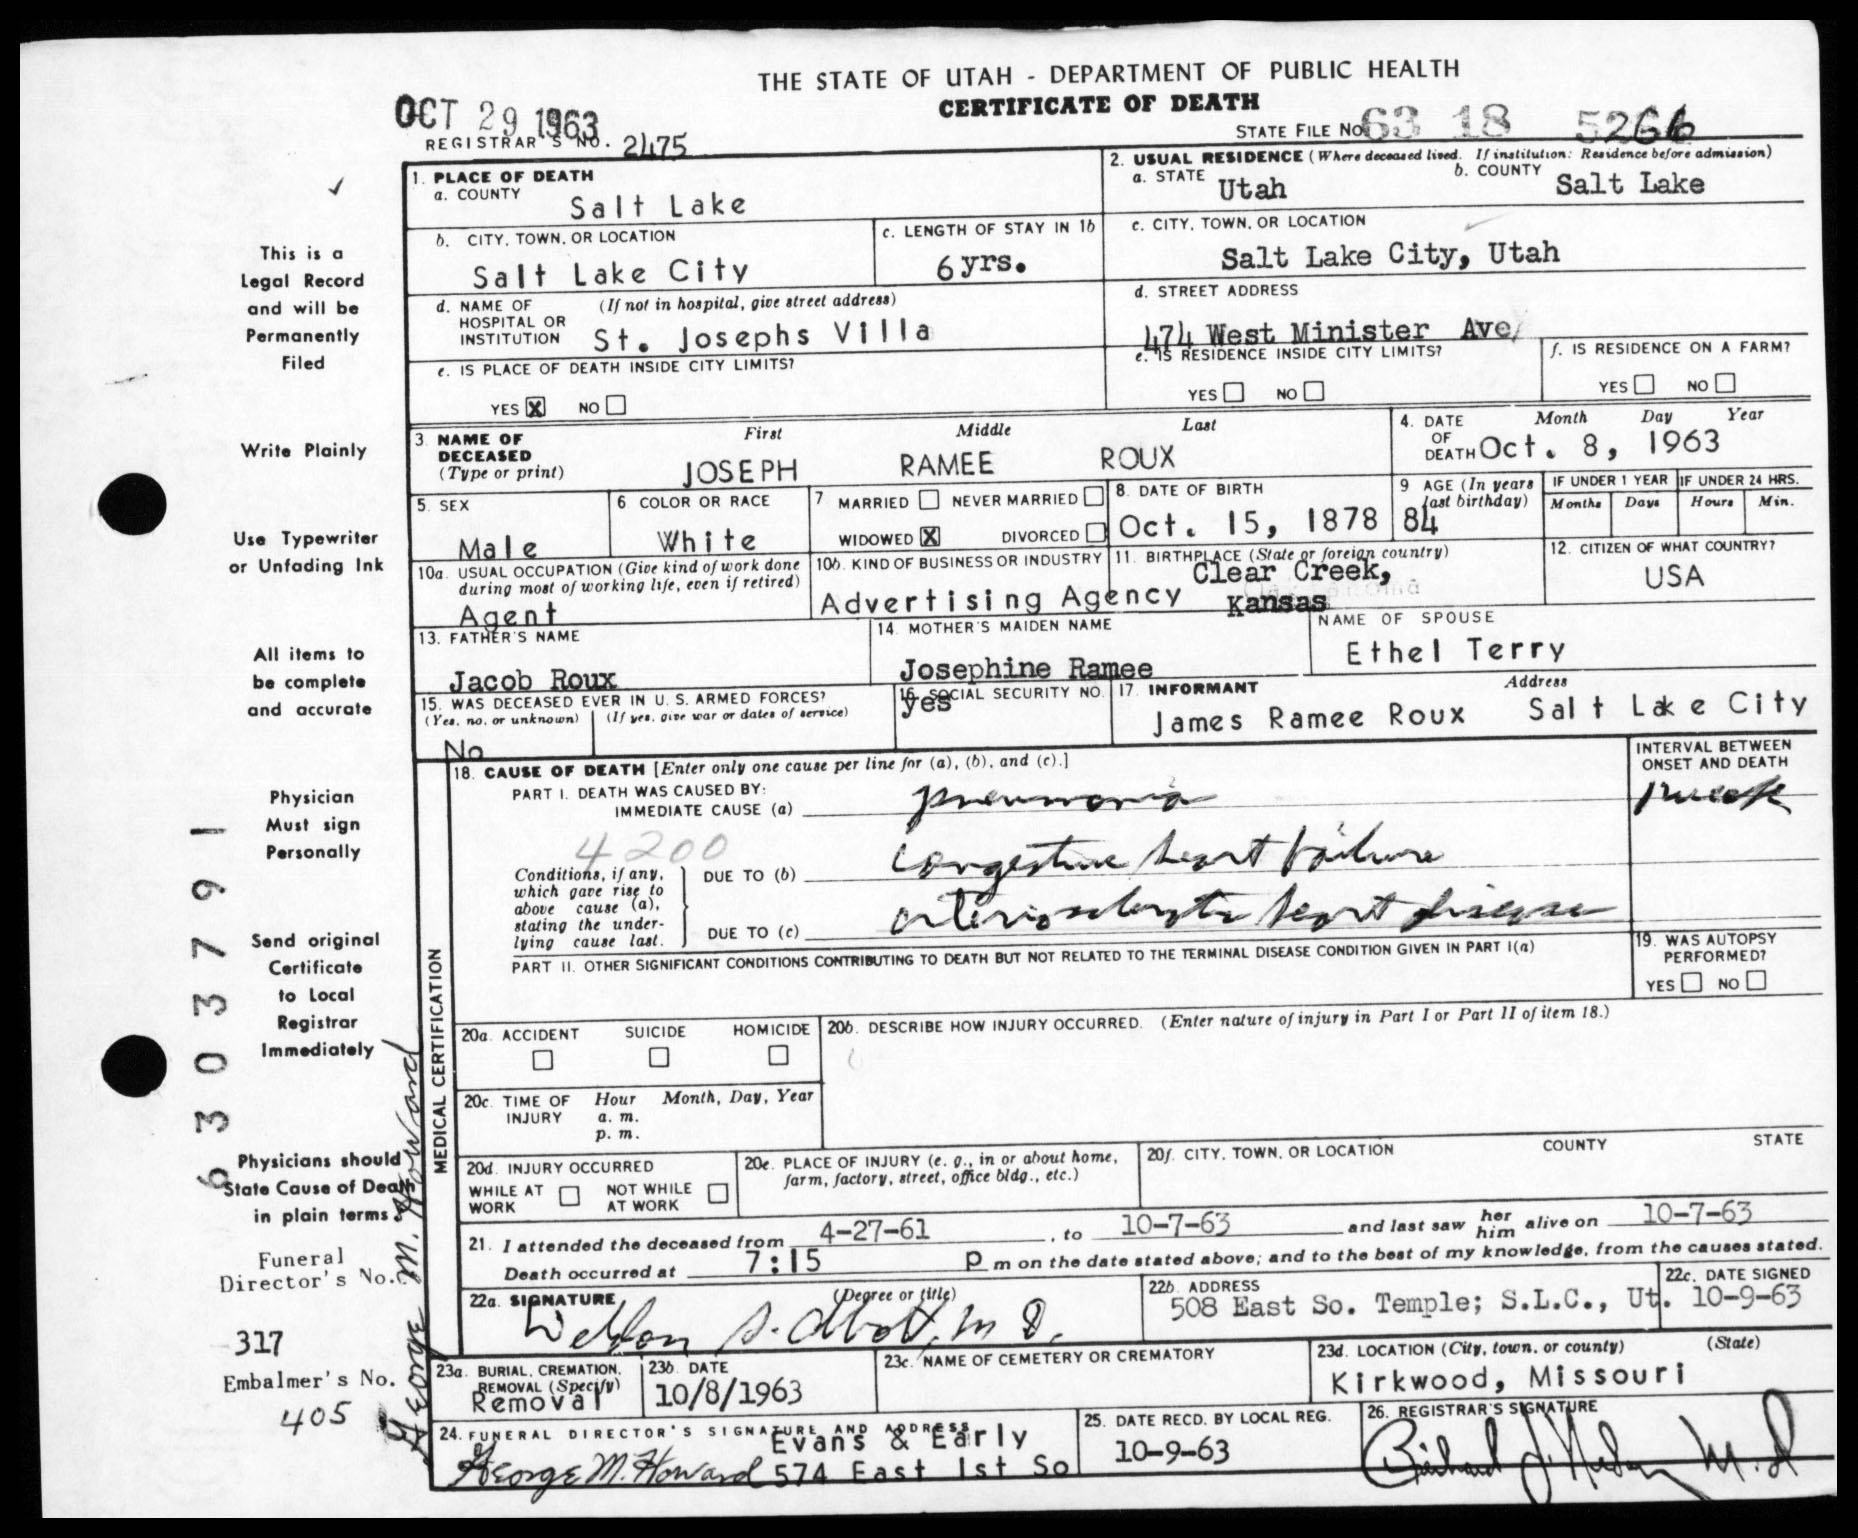 THE STATE OF UTAH - DEPARTMENT OF PUBLIC HEALTH
CERTIFICATE OF DEATH
OCT 29 1963
STATE FILE NO. 63 18 5266
REGISTRAR'S NO. 2475
This is a
Legal Record
and will be
Permanently
Filed
Write Plainly
Use Typewriter
or Unfading Ink
All items to
be complete
and accurate
Physician
Must sign
Personally
Send original
Certificate
to Local
Registrar
Immediately
Physicians should
State Cause of Death
in plain terms.
Funeral
Director's No.
317
Embalmer's No.
405
6303791
George M. Howard
1. PLACE OF DEATH
a. COUNTY
Salt Lake
2. USUAL RESIDENCE (Where deceased lived. If institution: Residence before admission)
a. STATE Utah
b. COUNTY Salt Lake
b. CITY, TOWN, OR LOCATION
Salt Lake City
c. LENGTH OF STAY IN 1b
6 yrs.
c. CITY, TOWN, OR LOCATION
Salt Lake City, Utah
d. NAME OF HOSPITAL OR INSTITUTION (If not in hospital, give street address)
St. Josephs Villa
d. STREET ADDRESS
474 West Minister Ave
e. IS PLACE OF DEATH INSIDE CITY LIMITS?
YES X NO
e. IS RESIDENCE INSIDE CITY LIMITS?
YES NO
f. IS RESIDENCE ON A FARM?
YES NO
3. NAME OF DECEASED (Type or print)
First Middle Last
JOSEPH RAMEE ROUX
4. DATE OF DEATH Month Day Year
Oct. 8, 1963
5. SEX
Male
6 COLOR OR RACE
White
7 MARRIED NEVER MARRIED
WIDOWED X DIVORCED
8. DATE OF BIRTH
Oct. 15, 1878
9 AGE (In years last birthday)
84
IF UNDER 1 YEAR
Months Days
IF UNDER 24 HRS.
Hours Min.
10a. USUAL OCCUPATION (Give kind of work done during most of working life, even if retired)
Agent
10b. KIND OF BUSINESS OR INDUSTRY
Advertising Agency
11. BIRTHPLACE (State or foreign country)
Clear Creek,
Kansas
12. CITIZEN OF WHAT COUNTRY?
USA
13. FATHER'S NAME
Jacob Roux
14. MOTHER'S MAIDEN NAME
Josephine Ramee
NAME OF SPOUSE
Ethel Terry
15. WAS DECEASED EVER IN U. S. ARMED FORCES?
(Yes, no, or unknown) (If yes, give war or dates of service)
No
16. SOCIAL SECURITY NO.
yes
17. INFORMANT Address
James Ramee Roux Salt Lake City
MEDICAL CERTIFICATION
18. CAUSE OF DEATH [Enter only one cause per line for (a), (b), and (c).]
INTERVAL BETWEEN ONSET AND DEATH
PART I. DEATH WAS CAUSED BY:
IMMEDIATE CAUSE (a) pneumonia 1 week
4200
Conditions, if any, which gave rise to above cause (a), stating the underlying cause last.
DUE TO (b) congestive heart failure
DUE TO (c) arteriosclerotic heart disease
PART II. OTHER SIGNIFICANT CONDITIONS CONTRIBUTING TO DEATH BUT NOT RELATED TO THE TERMINAL DISEASE CONDITION GIVEN IN PART I(a)
19. WAS AUTOPSY PERFORMED?
YES NO
20a. ACCIDENT SUICIDE HOMICIDE
20b. DESCRIBE HOW INJURY OCCURRED. (Enter nature of injury in Part I or Part II of item 18.)
20c. TIME OF INJURY Hour Month, Day, Year
a. m.
p. m.
20d. INJURY OCCURRED
WHILE AT WORK NOT WHILE AT WORK
20e. PLACE OF INJURY (e. g., in or about home, farm, factory, street, office bldg., etc.)
20f. CITY, TOWN, OR LOCATION COUNTY STATE
21. I attended the deceased from 4-27-61, to 10-7-63 and last saw her him alive on 10-7-63
Death occurred at 7:15 P m on the date stated above; and to the best of my knowledge, from the causes stated.
22a. SIGNATURE (Degree or title)
M D.
22b. ADDRESS
508 East So. Temple; S.L.C., Ut.
22c. DATE SIGNED
10-9-63
23a. BURIAL, CREMATION, REMOVAL (Specify)
Removal
23b. DATE
10/8/1963
23c. NAME OF CEMETERY OR CREMATORY
23d. LOCATION (City, town, or county) (State)
Kirkwood, Missouri
24. FUNERAL DIRECTOR'S SIGNATURE AND ADDRESS
George M. Howard
Evans & Early
574 East 1st So
25. DATE RECD. BY LOCAL REG.
10-9-63
26. REGISTRAR'S SIGNATURE
Richard M.D